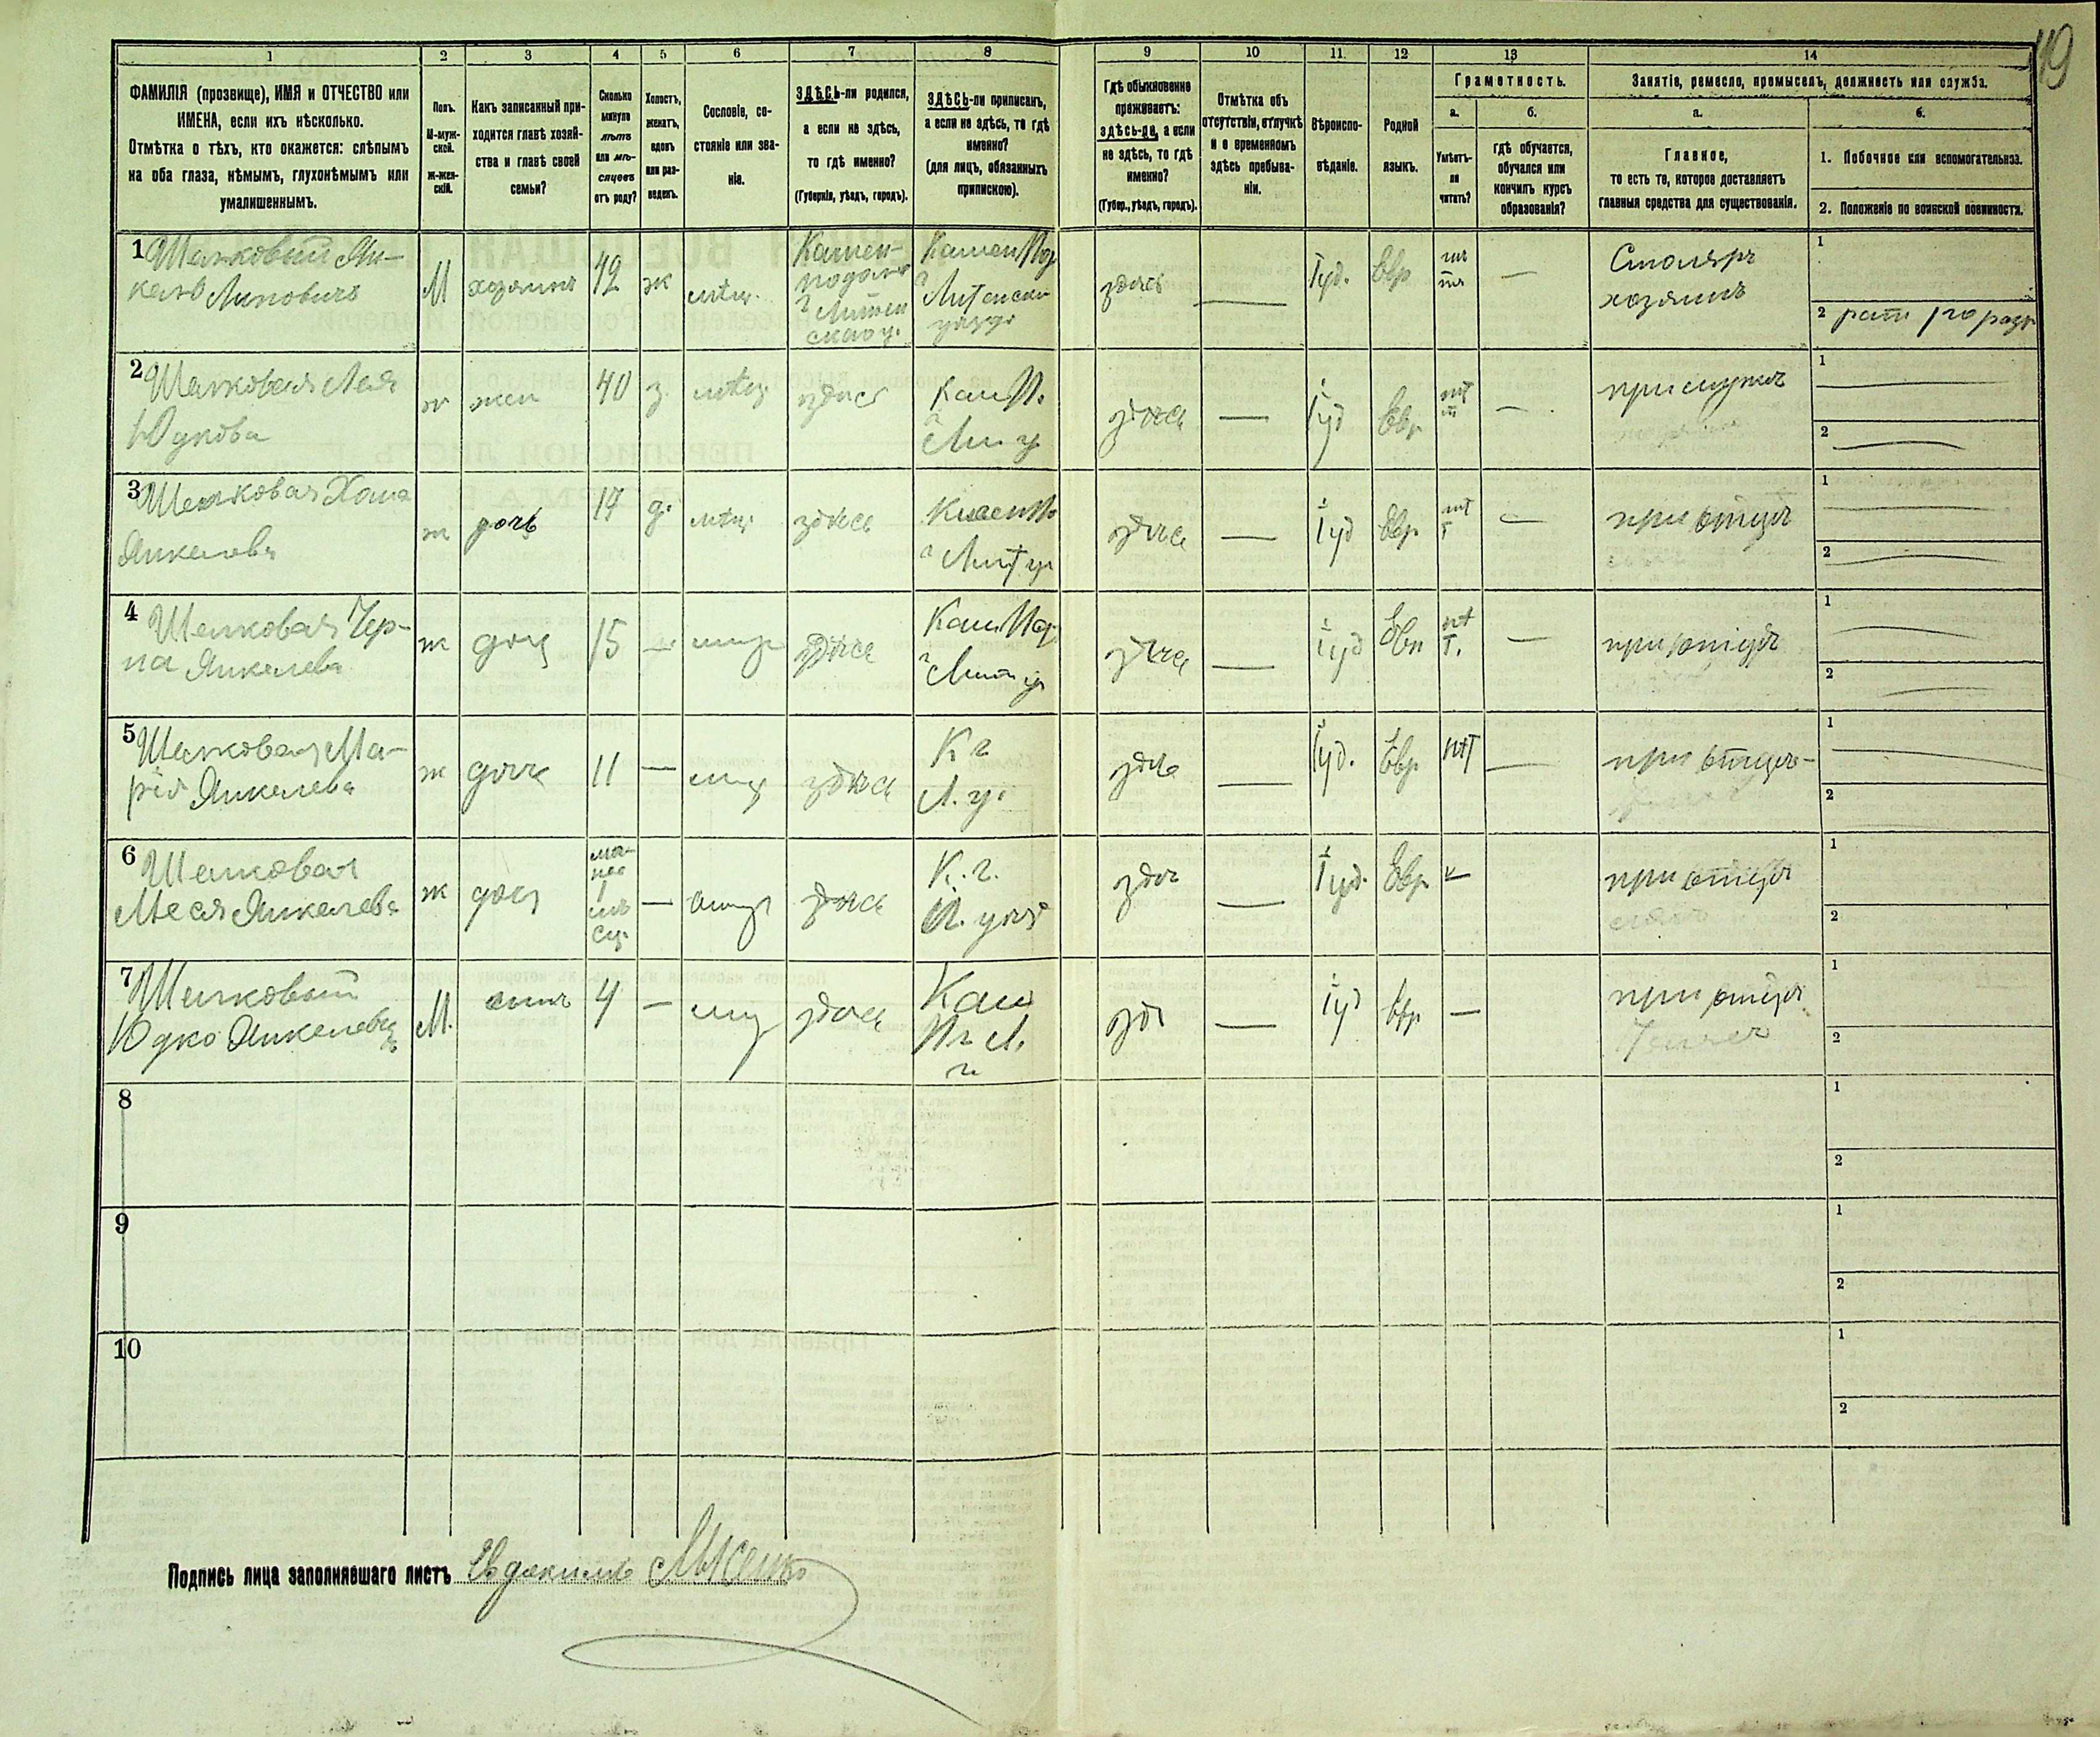 119
1
2
3
4
5
6
7
8
9
10
11
12
13
14
ФАМИЛІЯ (прозвище), ИМЯ и ОТЧЕСТВО или
ИМЕНА, если ихъ нѣсколько.
Отмѣтка о тѣхъ, кто окажется: слѣпымъ
на оба глаза, нѣмымъ, глухонѣмымъ или
умалишеннымъ.
Полъ.
М-муж-
ской.
Ж-жен-
скій.
Какъ записанный при-
ходится главѣ хозяй-
ства и главѣ своей
семьи?
Сколько
минуло
лѣтъ
или мѣ-
сяцевъ
отъ роду?
Холостъ,
женатъ,
вдовъ
или раз-
веденъ.
Сословіе, со-
стояніе или зва-
ніе.
ЗДѢСЬ-ли родился,
а если не здѣсь,
то гдѣ именно?
(Губернія, уѣздъ, городъ).
ЗДѢСЬ-ли приписанъ,
а если не здѣсь, то гдѣ
именно?
(для лицъ, обязанныхъ
припискою).
Гдѣ обыкновенно
проживаетъ:
здѣсь-ли, а если
не здѣсь, то гдѣ
именно?
(Губер., уѣздъ, городъ).
Отмѣтка объ
отсутствіи, отлучкѣ
и о временномъ
здѣсь пребыва-
ніи.
Вѣроиспо-
вѣданіе.
Родной
языкъ.
Грамотность.
а.
Умѣетъ-
ли
читать?
б.
гдѣ обучается,
обучался или
кончилъ курсъ
образованія?
Занятіе, ремесло, промыселъ, должность или служба.
а.
Главное,
то есть то, которое доставляетъ
главныя средства для существованія.
б.
1. Побочное или вспомогательное.
2. Положеніе по воинской повинности.
1 Шелковый Ян-
кель
М хозяинъ 42 ж мѣщ.
Камен-
подол
г Литин
скаго у.
Камен Под
г Литински
уѣзда
здѣсь — Іуд. Евр —
Столяръ
хозяинъ
1
2
2 Шелковая Лея
Юдкова
ж жен 40 з. мѣщ здѣсь
Кам П.
г Лит у
здѣсь — Іуд Евр нѣт —
при мужѣ
1
2
3 Шелковая Хана
Янкелева
ж дочь 17 д. мѣщ здѣсь
г Лит у
здѣсь — Іуд Евр нѣт —
при отцѣ
1
2
4 Шелковая Чер-
на Янкелева
ж доч 15 — мищ здѣсь
Кам Под
г Лит у
здѣсь — Іуд Евр нѣт. —
при отцѣ
1
2
5 Шелковая Ма-
рія Янкелева
ж доч 11 — мищ здѣсь
К г
Л. у.
здѣсь — Іуд. Евр нѣт —
при отцѣ
1
2
6 Шелковая
Меся Янкелева
ж доч — мищ здѣсь
К. г.
Л. уѣзд
здѣс — Іуд. Евр
при отцѣ
1
2
7 Шелковый
Юдко Янкелевъ
М. сынъ 4 — мищ здѣсь
Кам
здѣ — Іуд Евр —
при отцѣ
1
2
8
1
2
9
1
2
10
1
2
Подпись лица заполнявшаго листъ Евдокимъ